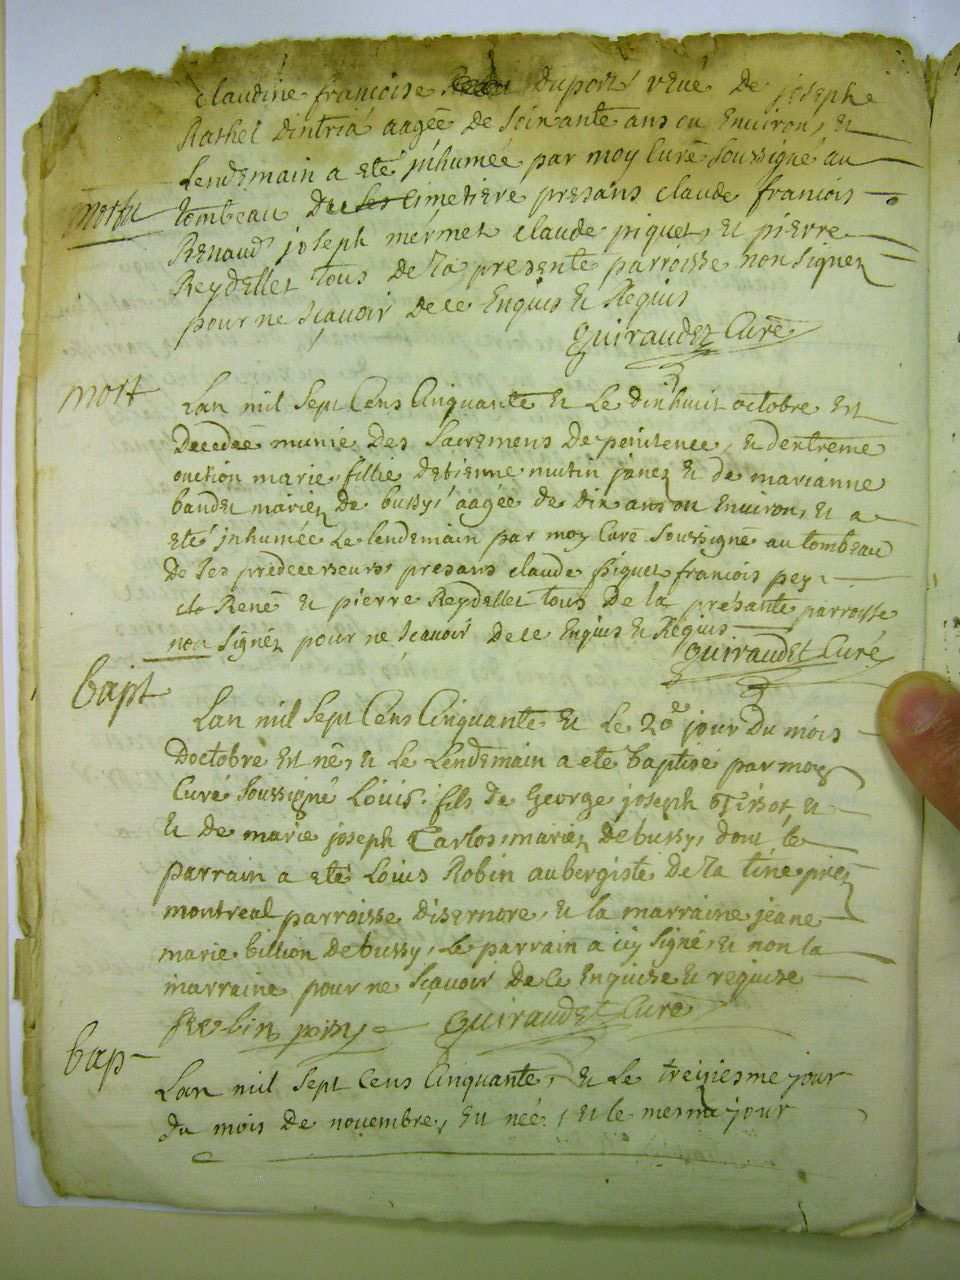 claudine francoise duport veuê de joseph
Rathel dintria aagée de soixante ans ou Environ, Et
Lendemain a eté jnhumée par moy Curé soussigné au
mortu
tombeau de ses Cimetiere presans claude francois
Renaud joseph mermet claude piquet, Et pierre
Reydellet tous de La presente parroisse non signez
pour ne scavoir de ce Enquis Et Réquis
Guiraudet Curé
mort
Lan mil sept Cens Cinquante Et Le dixhuit octobre Est
Decedée munie des sacremens de penitence, Et dextreme
onction marie fillie detienne mutin janez Et de marianne
baudet mariez de bussy, aagée de dix ans ou Environ, Et a
eté jnhumée Le lendemain par moy Curé soussigné au tombeau
de ses predecesseurs presans claude piquet francois
René Et pierre Reydellet tous de la présante parroisse
non signéz pour ne scavoir de ce Enquis Et Réquis
Guiraudet Curé
bapt
Lan mil sept Cens Cinquante Et Le 20e jour du mois
Doctobre Est né, Et Le Lendemain a eté baptisé par moy
Curé soussigné Louis fils de George joseph Tissot, Et
Et de marie joseph Carlos, mariez de bussy, dont le
parrain a eté Louis Robin aubergiste de La
montreal parroisse disernore, Et la marraine jeane
marie billion de bussy, Le parrain a icy signé Et non la
marraine pour ne scavoir de ce Enquise Et requise
Guiraudet Curé
bap
Lan mil sept Cens Cinquante, Et Le treiziesme jour
du mois de novembre, Est née, Et le mesme jour